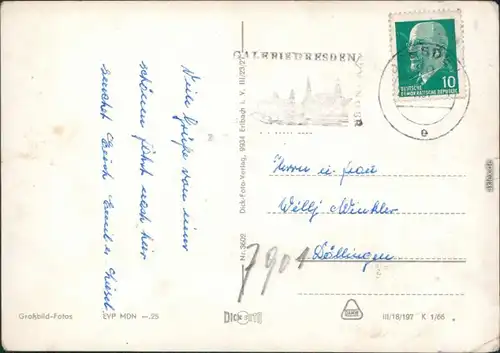 Viele Grüße von einer
schönen Fahrt nach hier
sendet Euch Emil u. Liesel
Großbild-Fotos
EVP MDN —.25
Nr. 3602
Dick-Foto-Verlag, 9934 Erlbach i. V. III/23/27
DICK FOTO
GALERIE DRESDEN
DEUTSCHE
DEMOKRATISCHE REPUBLIK
10
e
Herrn u. Frau
Willj Winkler
Döllingen
7901
III/18/197 K 1/66